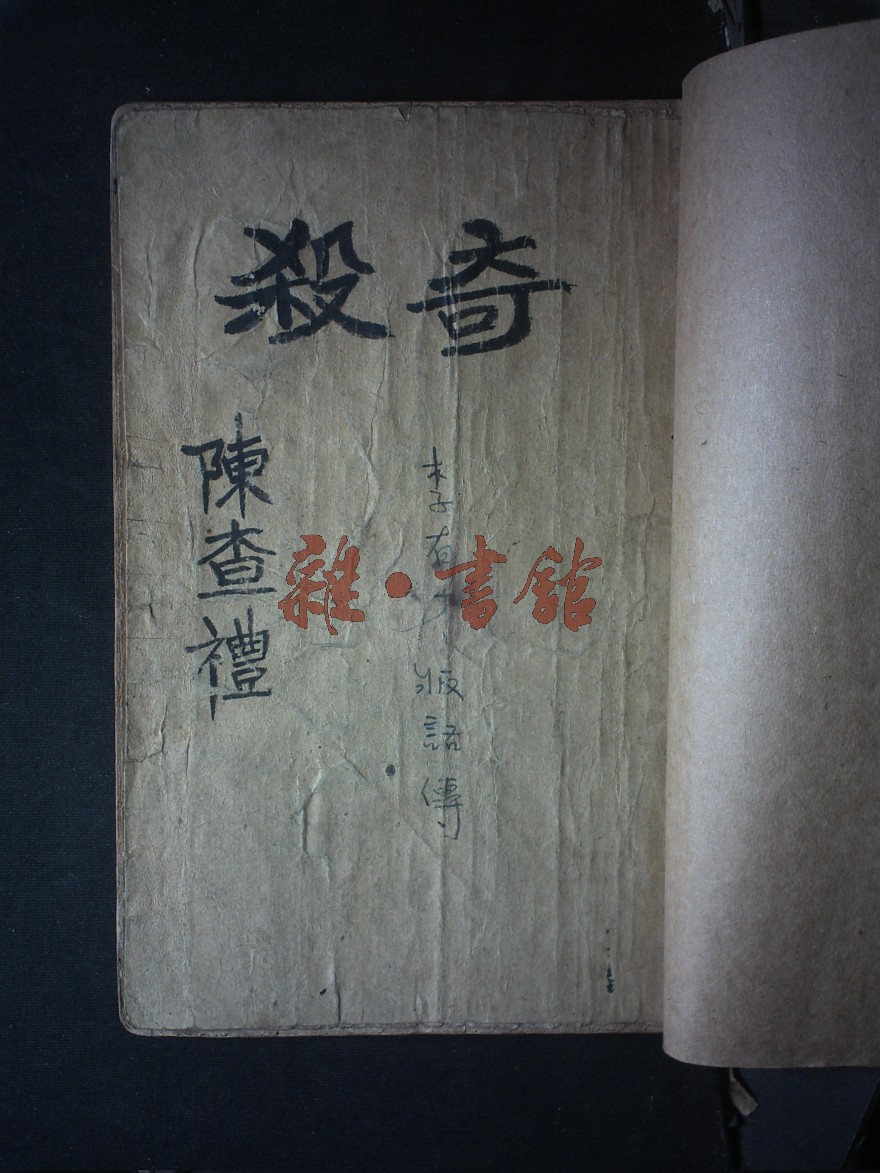 奇殺
李有才版話傳
陳查禮
雜·書館